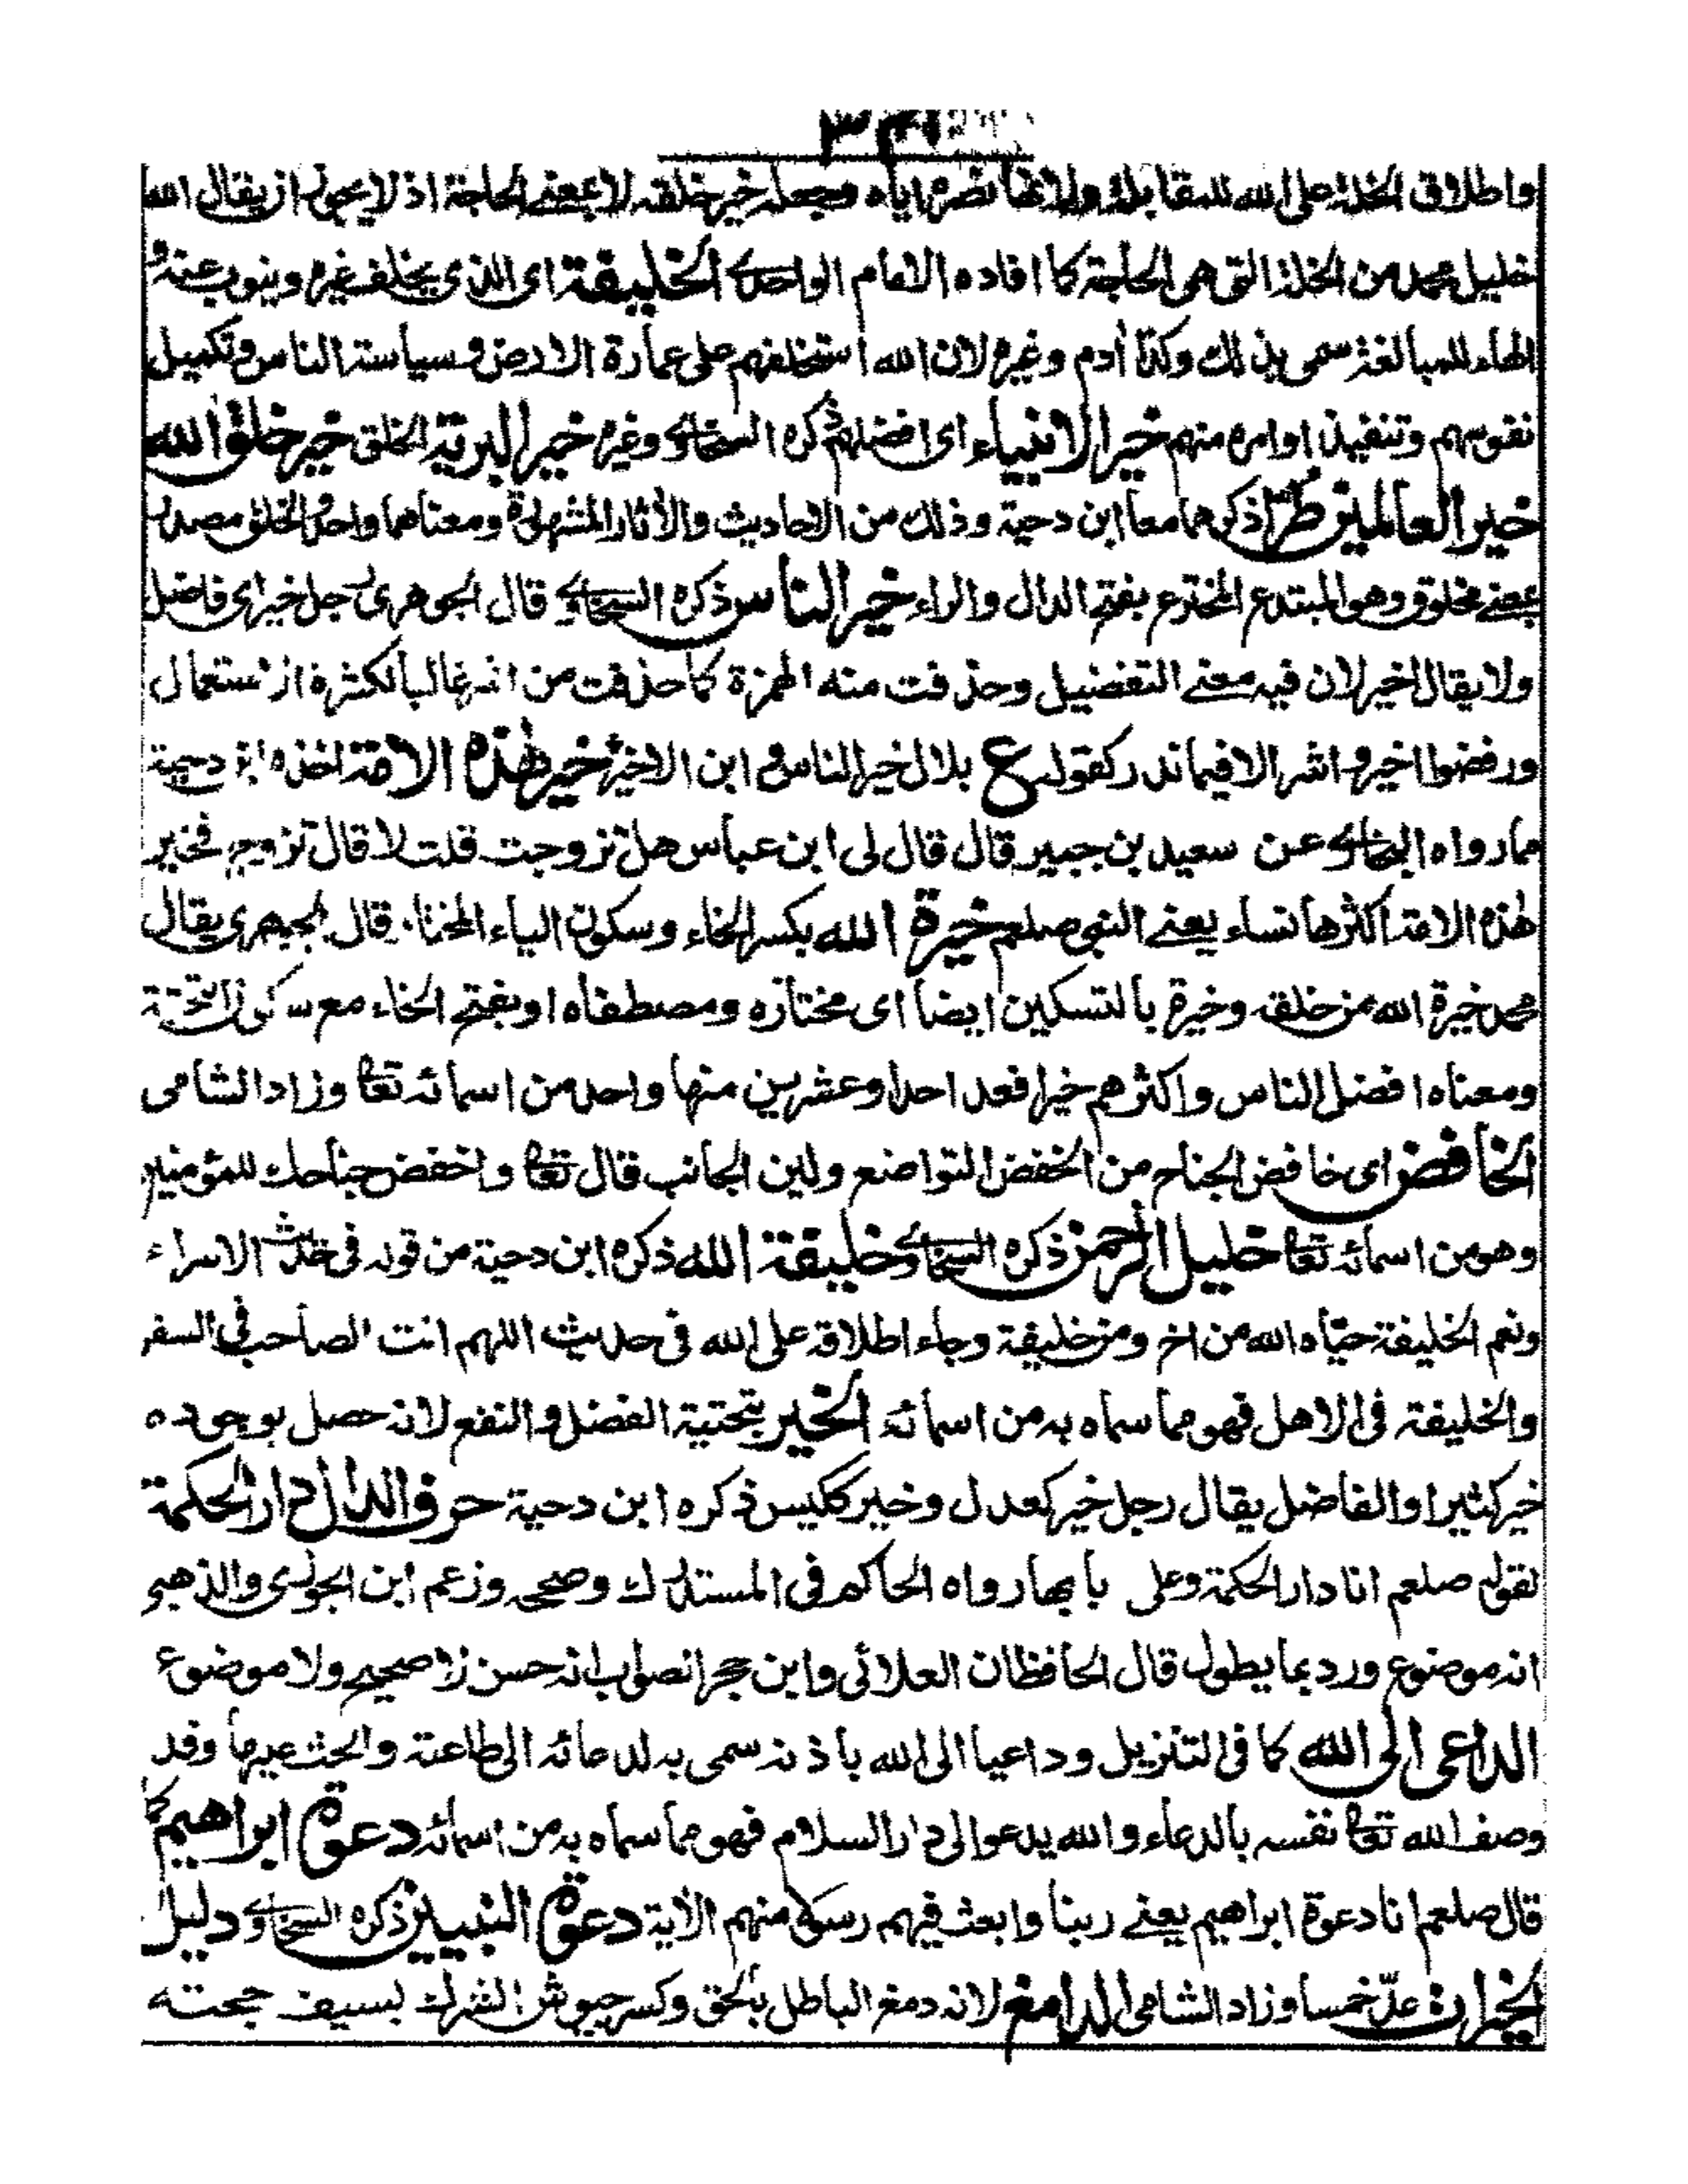 واطلاق الخلة على الله للمقابلة ولانها نصره اياه وجعله خير خلقه لا بمعنے الحاجة اذ لا يجوز ان يقال الله
خليل محمد من الخلة التى هى الحاجة كما افاده الامام الواحدى الخليفة اى الذى يخلف غيره وينوب عنه و
الهاء للمبالغة سمى بذلك وكذا أدم وغيره لان الله استخلفهم على عمارة الارض وسياسة الناس وتكميل
نفوسهم وتنفيذ اوامره منهم خير الانبياء اى افضلهم ذكره السخاوى وغيره خير البرية الخلق خير خلق الله
خير العالمين طرّا ذكرهما معا ابن دحية وذلك من الاحاديث والأثار المشهورة ومعناهما واحد والخلق مصدر
بمعنے مخلوق وهو المبتدع المخترع بفتح الدال والراء خير الناس ذكره السخاوى قال الجوهرى رجل خير اى فاضل
ولا يقال اخير لان فيه معنے التفضيل وحذفت منه الهمزة كما حذفت من اشر غالبا لكثرة الاستعمال
ورفضوا اخير واشر الا فيما ندر كقوله ع بلال خير الناس وابن الاخير خير هذه الامة اخذه ابن دحية
مما رواه البخارى عن سعيد بن جبير قال قال لى ابن عباس هل تزوجت قلت لا قال تزوج فخير
هذه الامة اكثرها نساء يعنے النبى صلعم خيرة الله بكسر الخاء وسكون الياء المختار قال الجوهرى يقال
محمد خيرة الله من خلقه وخيرة بالتسكين ايضا اى مختاره ومصطفاه او بفتح الخاء مع سكون التحتية
ومعناه افضل الناس واكثرهم خيرا فعد احدا وعشرين منها واحد من اسمائه تعا وزاد الشامى
الخافض اى خافض الجناح من الخفض التواضع ولين الجانب قال تعا واخفض جناحك للمؤمنين
وهو من اسمائه تعا خليل الرحمن ذكره السخاوى خليفة الله ذكره ابن دحية من قوله فى حديث الاسراء
ونعم الخليفة حيّاه الله من اخ ومن خليفة وجاء اطلاقه على الله فى حديث اللهم انت الصاحب فى السفر
والخليفة فى الاهل فهو مما سماه به من اسمائه الخير بتحتية الفضل والنفع لانه حصل بوجوده
خير كثير او الفاضل يقال رجل خير كعدل وخير ككيس ذكره ابن دحية حرف الدال دار الحكمة
لقوله صلعم انا دار الحكمة وعلى بابها رواه الحاكم فى المستدرك وصححه وزعم ابن الجوزى والذهبى
انه موضوع ورد بما يطول قال الحافظان العلائى وابن حجر الصواب انه حسن لا صحيح ولا موضوع
الداعى الى الله كما فى التنزيل وداعيا الى الله باذنه سمى به لدعائه الى طاعته والحث عليها وقد
وصف الله تعا نفسه بالدعاء والله يدعو الى دار السلام فهو مما سماه به من اسمائه دعوة ابراهيم كما
قال صلعم انا دعوة ابراهيم يعنے ربنا وابعث فيهم رسولا منهم الأية دعوة النبيين ذكره السخاوى دليل
الخيرات عدّ خمسا وزاد الشامى الدامغ لانه دمغ الباطل بالحق وكسر جيوش الشرك بسيف حجته